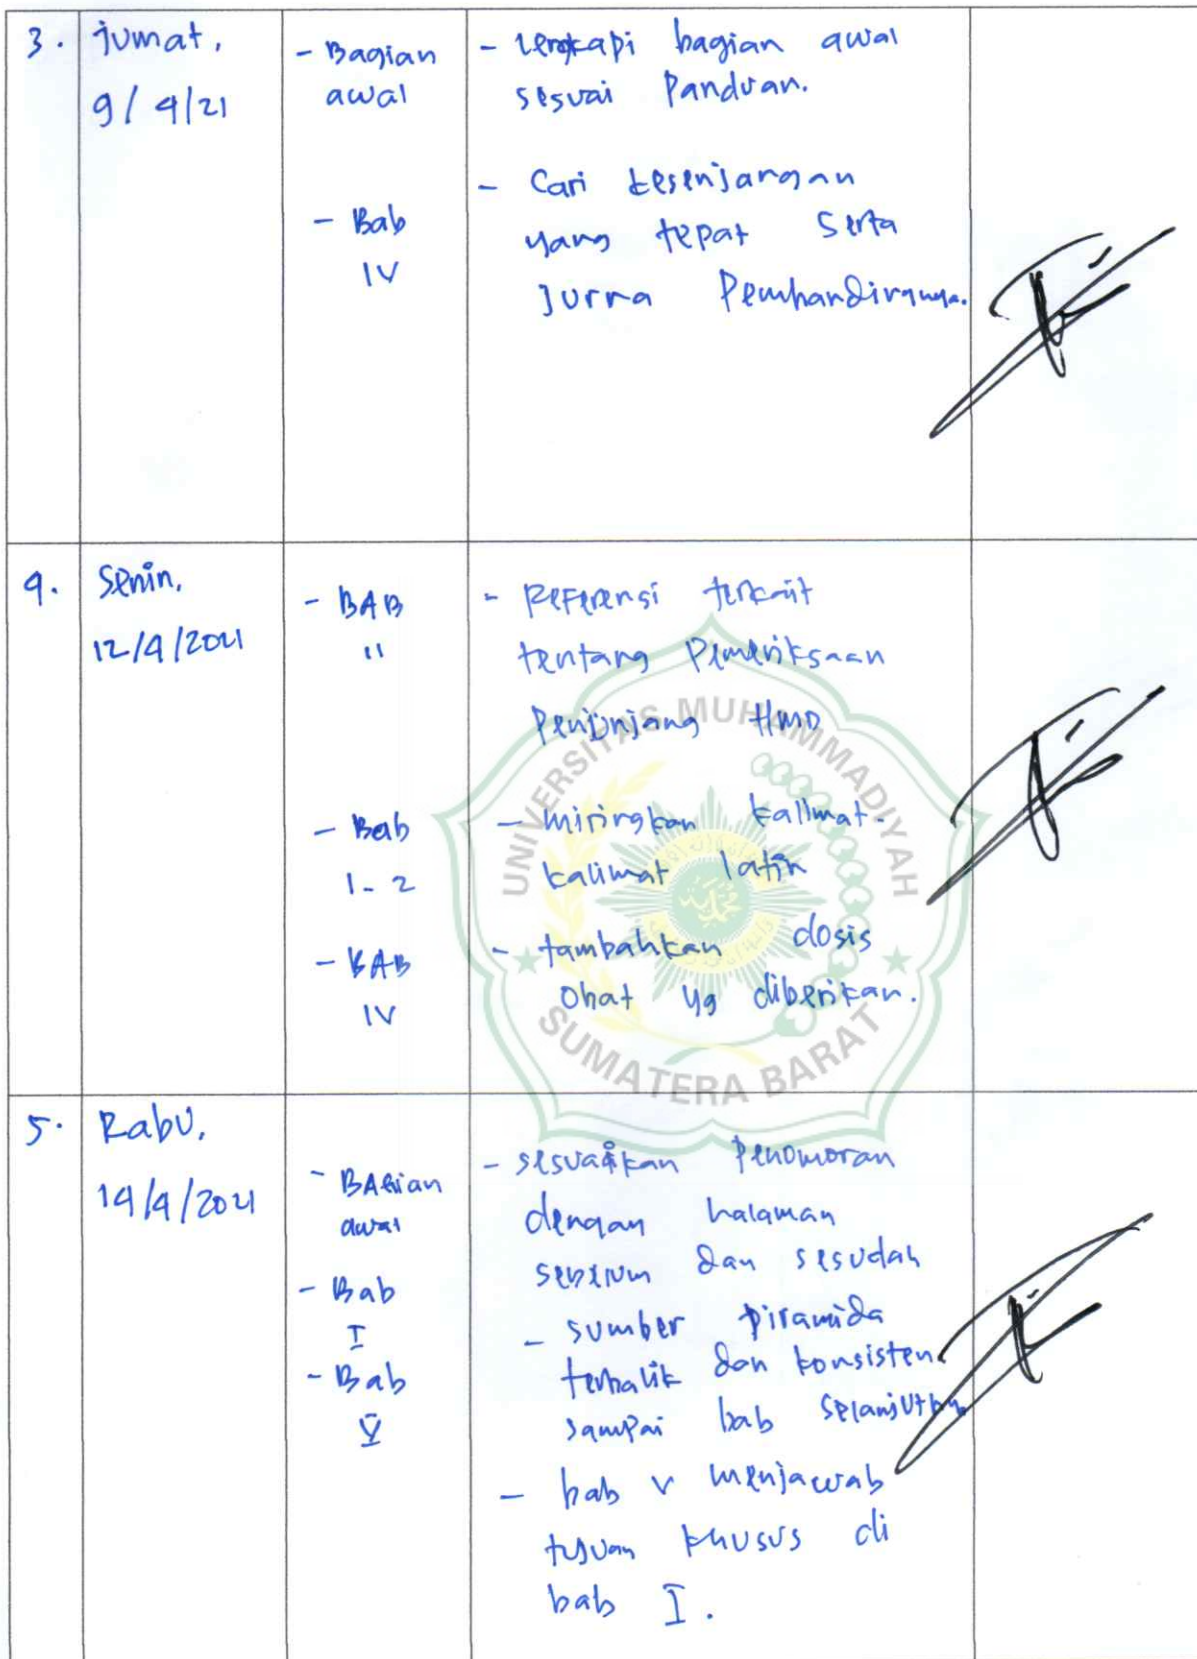 3. Jumat,
9/4/21
- Bagian
awal
- Bab
IV
- Lengkapi bagian awal
sesuai Panduan.
- Cari kesenjangan
yang tepat serta
Jurna Pembandingnya.
4. Senin,
12/4/2021
- BAB
II
- Bab
1-2
- BAB
IV
- Referensi terkait
tentang Pemeriksaan
Penunjang HMD
- miringkan kalimat-
kalimat latin
- tambahkan dosis
Obat yg diberikan.
5. Rabu,
14/4/2021
- BAgian
awal
- Bab
I
- Bab
V
- sesuaikan Penomoran
dengan halaman
sebelum dan sesudah
- sumber piramida
terbalik dan konsisten
sampai bab selanjutnya
- bab V menjawab
tujuan khusus di
bab I.
UNIVERSITAS MUHAMMADIYAH
SUMATERA BARAT